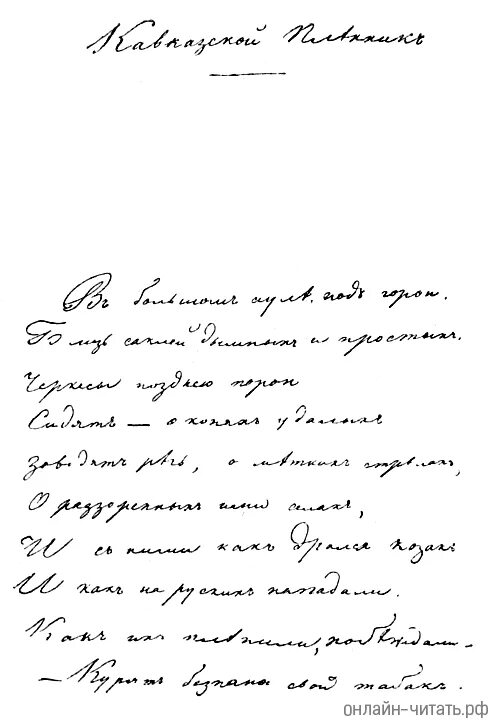 Кавказской Плѣнникъ
Въ большомъ аулѣ, подъ горою,
Близь саклей дымныхъ и простыхъ,
Черкесы позднею порою
Сидятъ — о коняхъ удалыхъ
Заводятъ рѣчь, о мѣткихъ стрѣлахъ,
О разоренныхъ ими селахъ,
И съ ними какъ дрался козакъ
И какъ на рускихъ нападали.
Какъ ихъ плѣнили, побѣждали —
— Курятъ безпечно свой табакъ.
онлайн-читать.рф